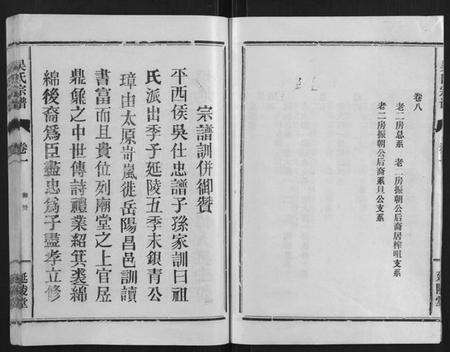 卷八
老二房总系 老二房振朝公后裔居榨咀支系
老二房振朝公后裔系旦公支系
吴氏宗谱
卷一
延陵堂
宗譜訓併御贊
平西侯吳仕忠譜子孫家訓曰祖
氏派出季子延陵五季末銀青公
璋由太原岢嵐徙岳陽昌邑訓讀
書富而且貴位列廟堂之上官居
鼎鼐之中世傳詩禮業紹箕裘綿
綿後裔爲臣盡忠爲子盡孝立修